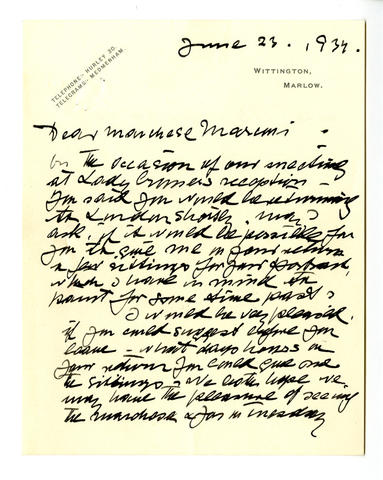 TELEPHONE:- HURLEY 20.
TELEGRAMS:- MEDMENHAM.
June 23. 1937.
WITTINGTON,
MARLOW.
Dear Marchese Marconi -
On the occasion of our meeting
at Lady reception -
you said you would be returning
to London shortly. may I
ask, if it would be possible for
you to give me on your return
a few sittings for your portrait,
which I have in mind to
paint for some time past?
I would be very pleased,
if you could suggest before you
leave - what days hours on
your return you could give me
the sittings - We both hope we
may have the pleasure of seeing
the marchesa & you on Tuesday